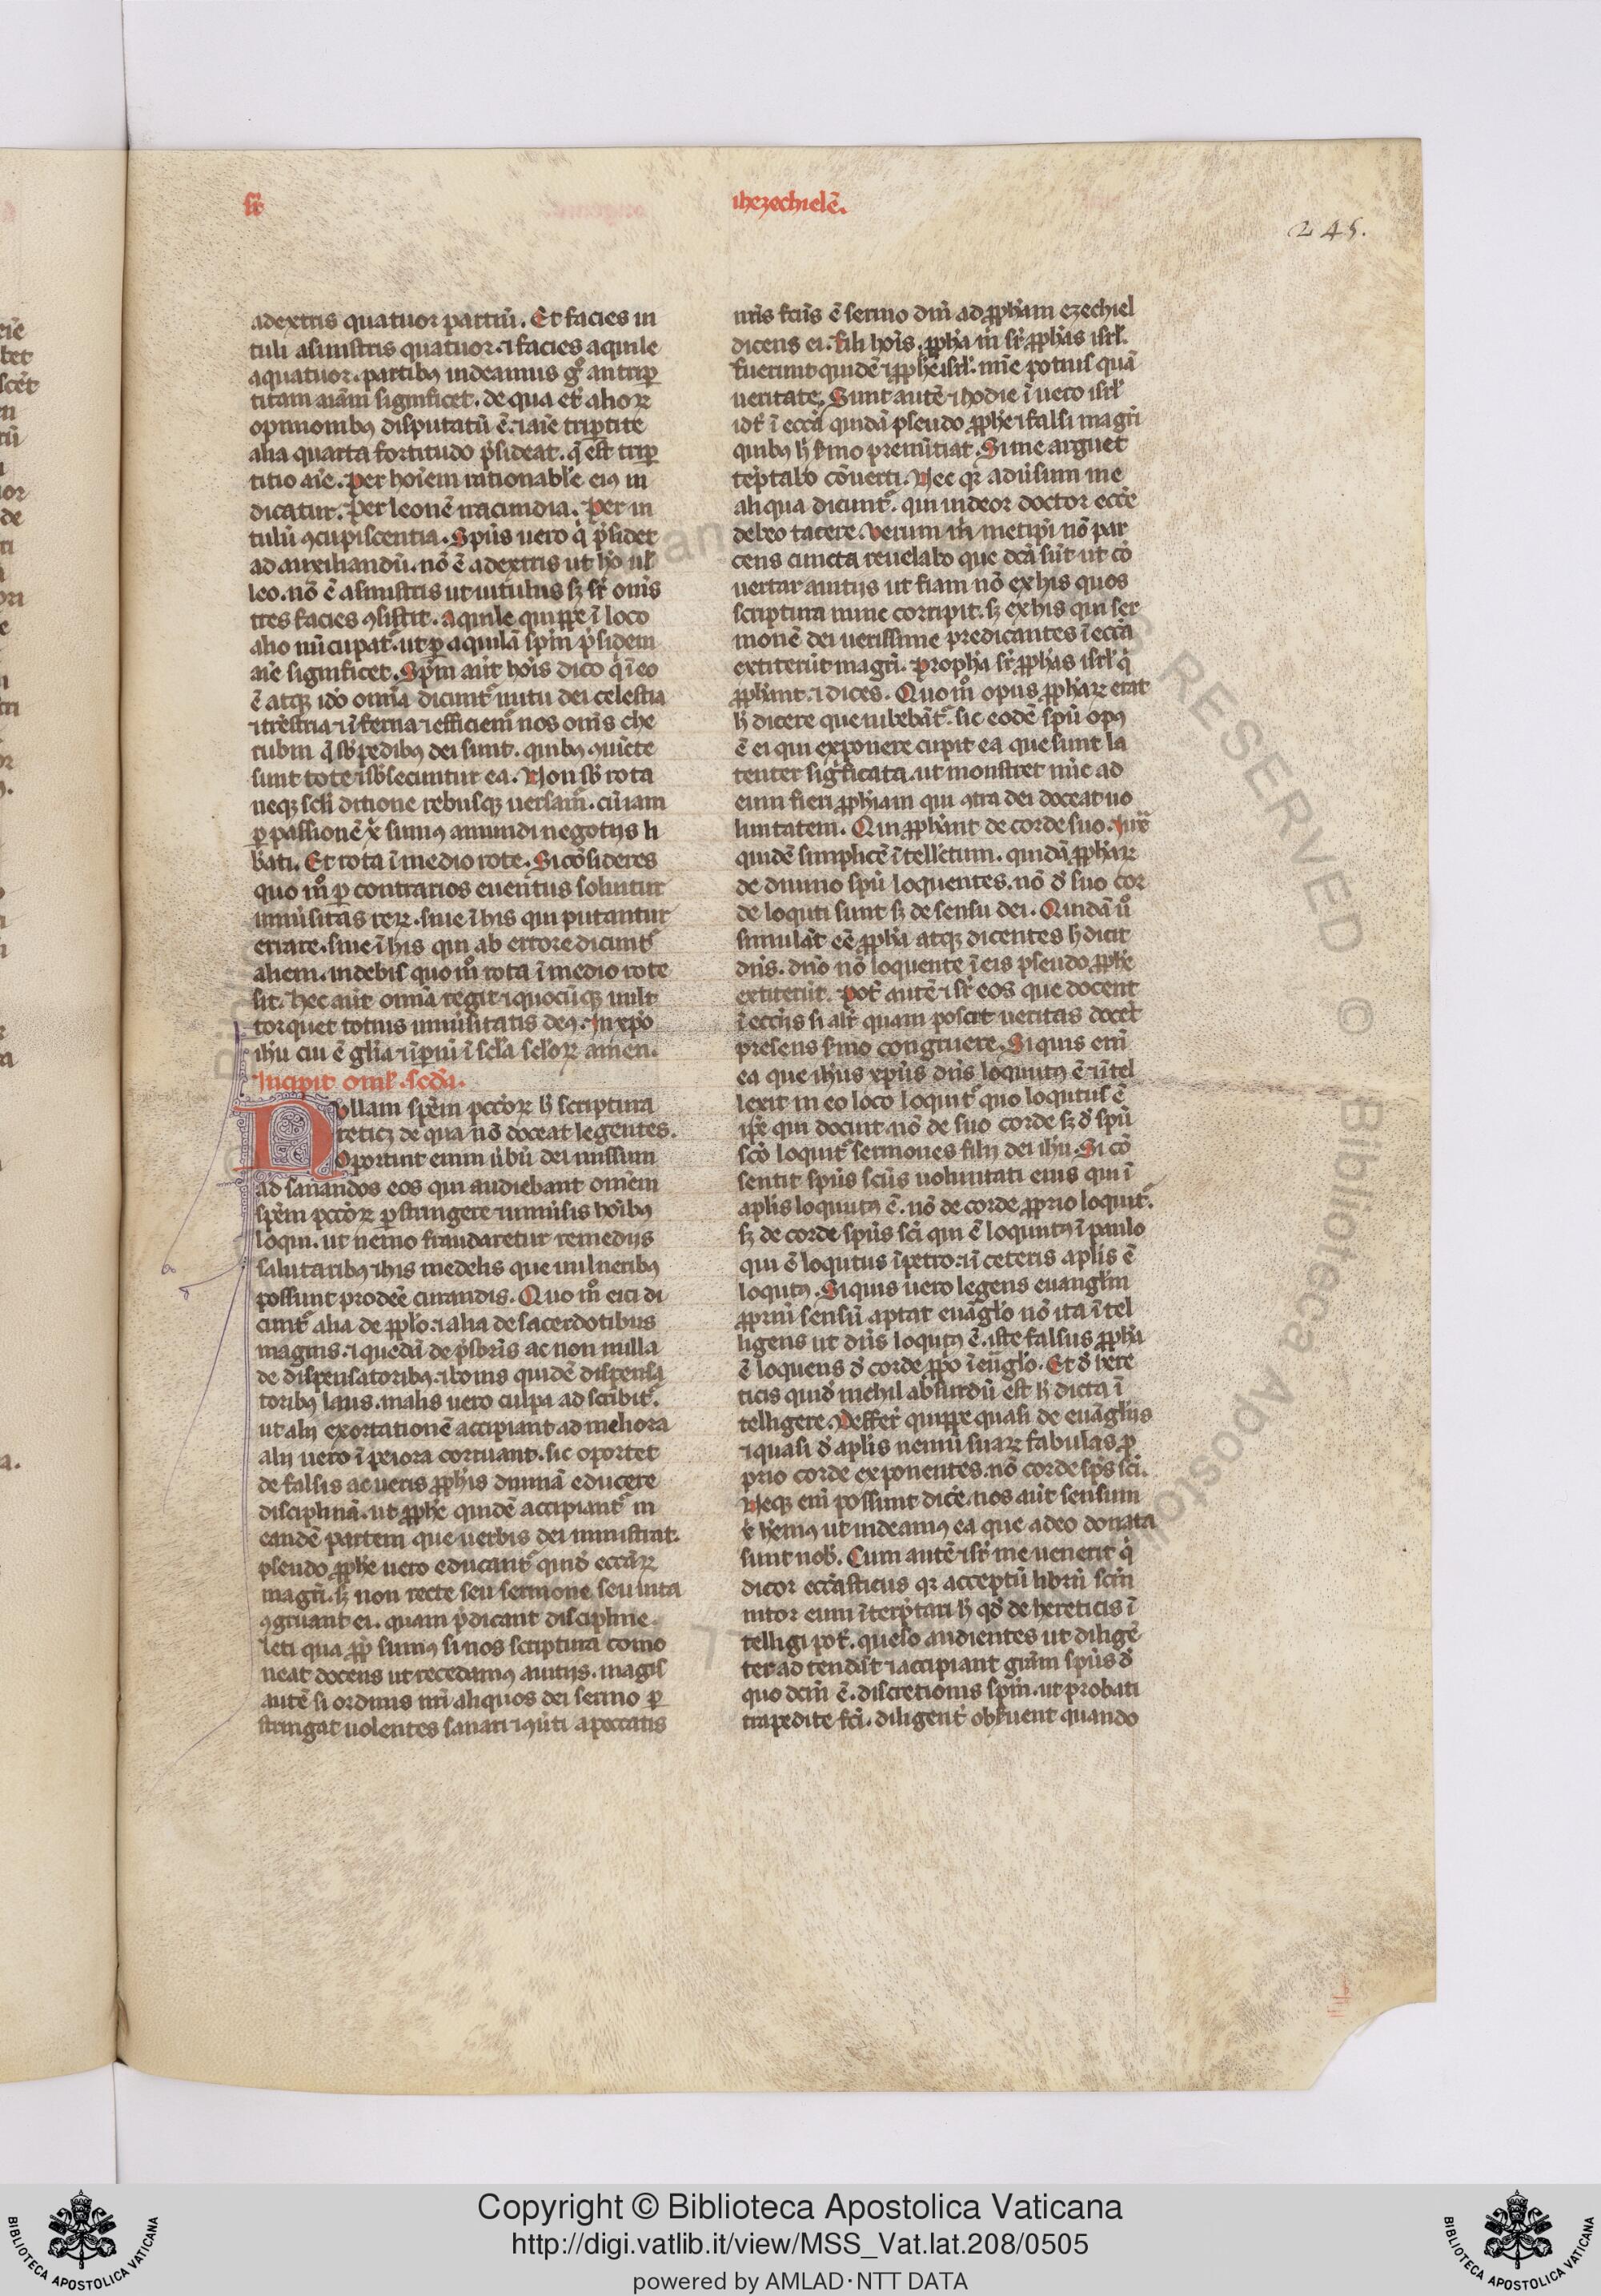 sr̄
ihezechielē.
245.
adextris quatuor partiū. Et facies ui
tuli asinistris quatuor. ⁊ facies aquile
aquatuor. partibꝰ uideamus gͦ an trip̄
titam aīam significet. de qua et̄ alioꝝ
opinionibꝰ disputatū ē. ⁊ aīe triptite
alia quarta fortitudo p̄sideat. q̄ est trip̄
titio aīe. Per hoīem rationabl̓e eiꝰ in
dicatur. Per leonē iracundia. Per ui
tulū ꝯcupiscentia. Spūs uero q̓ p̄sidet
ad auxiliandū. nō ē adextris ut hō ul̓
leo. nō ē asinistris ut uitulus sꝫ sr̄ om̄s
tres facies ꝯsistit. aquile quippe ī loco
alio nūcupat᷑. ut ꝑ aquilā spm̄ p̄sidem
aīe significet. Spm̄ aūt hoīs dico q̓ ī eo
ē atqꝫ ido om̄ia dicunt᷑ nutu dei celestia
⁊ trēstria ⁊ īferna ⁊ efficiem̄ nos om̄s che
rubin q̄ sb̄ pedibꝰ dei sunt. quibꝰ ꝯiūcte
sunt rote ⁊ sb̄secuntur ea. Non sb̄ rota
neqꝫ scl̓i ditione rebusqꝫ uersam̄. cū iam
ꝑ passionē xͥ sumꝰ a mundi negotijs li
b̄ati. Et rota ī medio rote. Si cōsideres
quo mͦ ꝑ contrarios euentus soluitur
uniūsitas reꝝ. siue ī his qui putantur
errare. siue ī his qui ab errore dicunt᷑
aliem. uidebis quo mͦ rota ī medio rote
sit. hec aūt om̄ia regit ⁊ quocūqꝫ uult
torquet totius uniūsitatis deꝰ. In xp̄o
ih̄u cui ē gl̄ia ⁊ īpiū ī scl̓a scl̓oꝝ amen.
Incipit omil̓. sc̄da.
Nullam spēm pccōꝝ h̄ scriptura
reticꝫ de qua nō doceat legentes.
Oportuit enim ūbū dei missum
ad sanandos eos qui audiebant omēm
spēm pccōꝝ ꝑstringere ⁊ uniūsis hoībꝰ
loqui. ut nemo fraudaretur remedijs
salutaribꝰ ⁊ his medelis que uulneribꝰ
possunt prodeē curandis. Quo mͦ eici di
cunt᷑ alia de pp̄lo. ⁊ alia de sacerdotibus
magnis. ⁊ quedā de p̄sbr̄is ac non nulla
de dispensatoribꝰ. ⁊ bonis quidē dispensa
toribꝰ laus. malis uero culpa ad scribit᷑.
ut alij exortationē accipiant ad meliora
alij uero ī peiora corruant. sic oportet
de falsis ac ueris ꝓph̄is diuinā educere
disciplinā. ut ꝓphe quidē accipiant᷑ in
eandē partem que uerbis dei ministrat.
pseudo ꝓphe uero educant᷑ quid̄ eccl̄aꝝ
magr̄i. sꝫ non recte seu sermone seu uita
ꝯgruant ei. quam p̄dicant discipline.
leti qua ꝓp̄ sumꝰ si nos scriptura como
neat docens ut recedamꝰ a uitijs. magis
autē si ordinis nr̄i aliquos dei sermo ꝑ
stringat uolentes sanari ⁊ ꝯūti apeccatis
nr̄is fcūs ē sermo dn̄i ad ꝓph̄am ezechiel
dicens ei. Fili hoīs. ꝓph̄a in̄ sr̄ ꝓph̄as isrl̓.
fuerunt quidē ⁊ ꝓphē isrl̓. nīe potius quā
ueritate. Sunt autē ⁊ hodie ī uero isrl̓
idt̄ ī eccl̄a quidā pseudo ꝓphe ⁊ falsi magr̄i
quibꝰ h̄ s̄mo prenūtiat. Si me arguet
tēptabo cōuerti. Nec qr̄ adūsum me
aliqua dicunt᷑. qui uideor doctor eccl̄e
debeo tacere. Verum m̄ metip̄i nō par
cens cuncta reuelabo que dcā sūt ut cō
uertar a uitijs ut fiam nō ex his quos
scriptura nunc corripit. sꝫ ex his qui ser
monē dei uerissime predicantes ī eccl̄a
extiterūt magr̄i. Proph̄a sr̄ ꝓph̄as isrl̓ q̓
ꝓph̄ant. ⁊ dices. Quo mͦ opus ꝓph̄aꝝ erat
h̄ dicere que iubebāt᷑. sic eodē spū opꝰ
ē ei qui exponere cupit ea que sunt la
tenter sigficata. ut monstret nīe ad
eum fieri ꝓph̄iam qui ꝯtra dei doceat uo
luntatem. Qui ꝓph̄ant de corde suo. Iux̄
quidē simplicē ītell̓ectum. quidā ꝓph̄aꝝ
de diuino spū loquentes. nō d̓ suo cor
de loquti sunt sꝫ de sensu dei. Quidā uͦ
simulāt eē ꝓph̄a atqꝫ dicentes h̄ dicit
dn̄s. dn̄o nō loquente ī eis pseudo ꝓphe
extiterūt. Pot̄ autē ⁊ sr̄ eos que docent
ī eccl̄ijs si alr̄ quam poscit ueritas docet
presens s̄mo congruere. Si quis eni
ea que ih̄us xp̄us dn̄s loqutꝰ ē ⁊ ītel
lexit in eo loco loquit᷑ quo loqutus ē
ip̄e qui docuit nō de suo corde sꝫ d̓ spū
scō loquit᷑ sermones filij dei ih̄u. Si cō
sentit spūs scūs uoluntati eius qui ī
apl̓is loqutꝰ ē. nō de corde ꝓprio loquit᷑.
sꝫ de corde spūs sci qui ē loqutꝰ ī paulo
qui ē loqutus ī petro. ⁊ ī ceteris apl̓is ē
loqutꝰ. Si quis uero legens euangl̓m
ꝓpriū sensū aptat euāgl̓o nō ita ītel
ligens ut dn̄s loqutꝰ ē. iste falsus ꝓph̄a
ē loquens d̓ corde ꝓp̄o ī euāgl̓o. Et d̓ here
ticis quid̓ nichil absurdū est h̄ dicta ī
telligere. Deffer̄t quippe quasi de euāgl̓ijs
⁊ quasi d̓ apl̓is nenū suaꝝ fabulas ꝓ
prio corde exponentes. nō corde spūs sci.
Neqꝫ eni possunt dice. nos aūt sensum
xͥ hēmꝰ ut uideamꝰ ea que a deo donata
sunt nob̄. Cum autē ⁊ sr̄ me uenerit q̓
dicor eccl̄asticus qr̄ acceptū librū scm̄
nitor eum īterp̄tari h̄ qd̓ de hereticis ī
telligi pot̄. queso audientes ut diligē
ter ad tendāt ⁊ accipiant gr̄am spūs d̓
quo dcm̄ ē. discretionis spm̄. ut probati
trapedite fci. diligent̄ obs̄uent quando
Copyright © Biblioteca Apostolica Vaticana
http://digi.vatlib.it/view/MSS_Vat.lat.208/0505
powered by AMLAD·NTT DATA
BIBLIOTECA APOSTOLICA VATICANA
BIBLIOTECA APOSTOLICA VATICANA